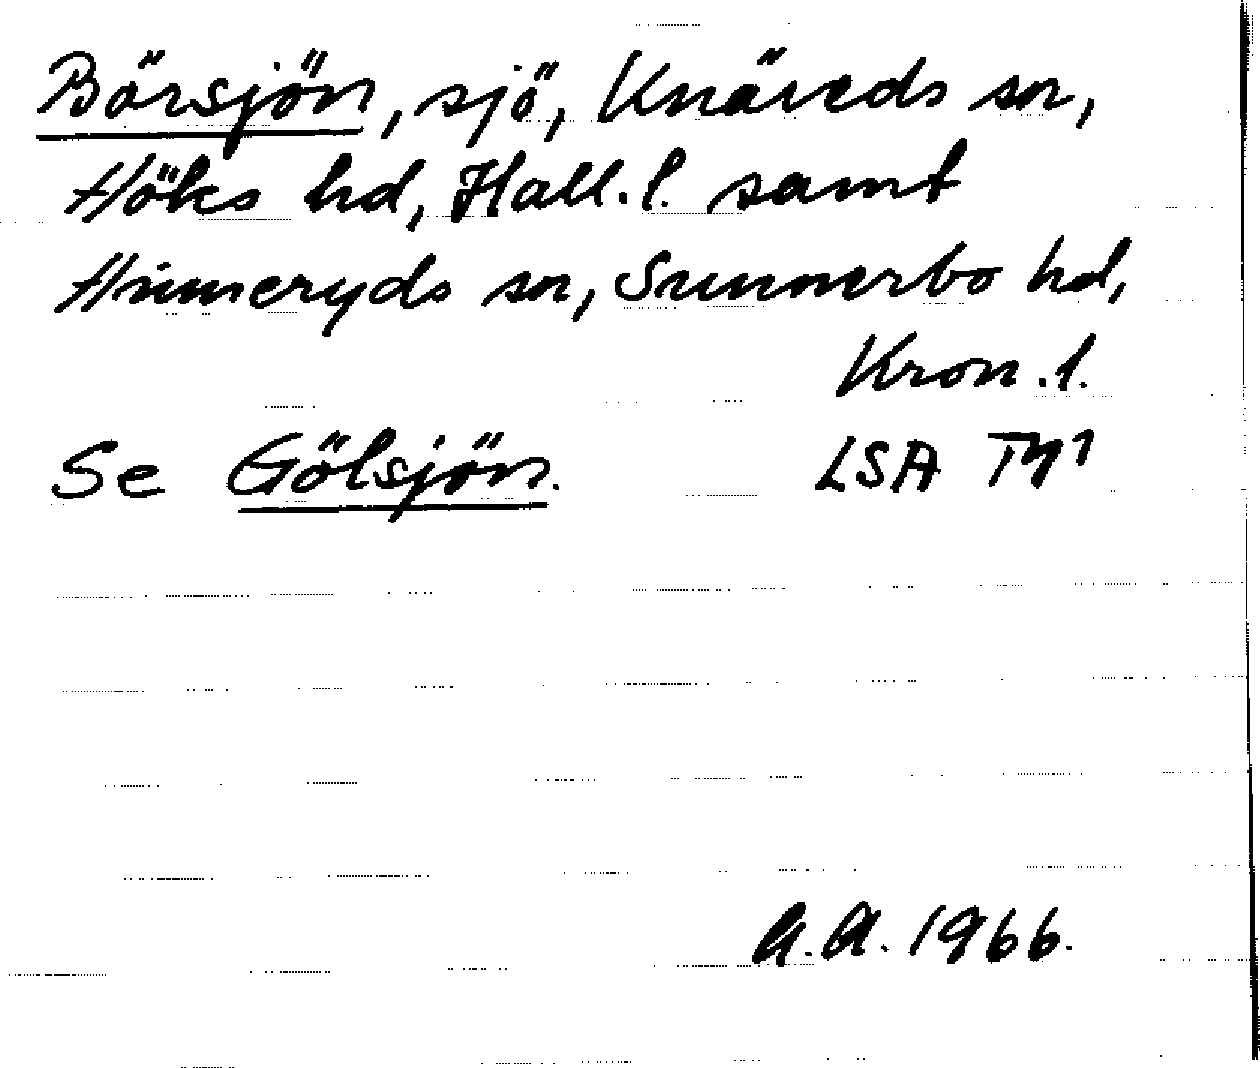 Börsjön, sjö, Knäreds sn,
Höks hd, Hall.l. samt
Hinneryds sn, Sunnerbo hd,
Kron.l.
Se Gölsjön. LSA
A.A. 1966.